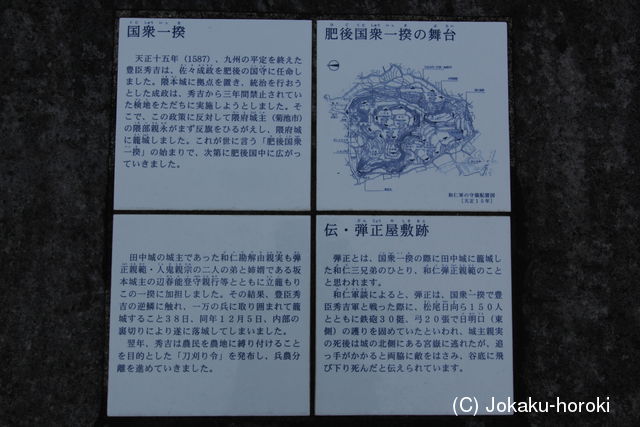 国衆一揆
天正十五年（1587）、九州の平定を終えた
豊臣秀吉は、佐々成政を肥後の国守に任命し
ました。隈本城に拠点を置き、統治を行おう
とした成政は、秀吉から三年間禁止されていた
検地をただちに実施しようとしました。そ
こで、この政策に反対して隈府城主（菊池市）
の隈部親永がまず反旗をひるがえし、隈府城
に籠城しました。これが世に言う「肥後国衆
一揆」の始まりで、次第に肥後国中に広がっ
ていきました。
肥後国衆一揆の舞台
和仁軍の守備配置図
［天正15年］
田中城の城主であった和仁勘解由親実も弟
弾正親範・人鬼親宗の二人の弟と姉婿である坂
本城主の辺春能登守親行等とともに立籠もり
この一揆に加担しました。その結果、豊臣秀
吉の逆鱗に触れ、一万の兵に取り囲まれて籠
城すること38日、同年12月5日、内部の
裏切りにより遂に落城してしまいました。
翌年、秀吉は農民を農地に縛り付けること
を目的とした「刀刈り令」を発布し、兵農分
離を進めていきました。
伝・弾正屋敷跡
弾正とは、国衆一揆の際に田中城に籠城し
た和仁三兄弟のひとり、和仁弾正親範のこと
と思われます。
和仁軍談によると、弾正は、国衆一揆で豊
臣秀吉軍と戦った際に、松尾日向ら150人
とともに鉄砲30挺、弓20張で日明口（東
側）の護りを固めていたといわれ、城主親実
の死後は城の北側にある宮嶽に逃れたが、追
っ手がかかると両脇に敵をはさみ、谷底に飛
び下り死んだと伝えられています。
(C) Jokaku-horoki